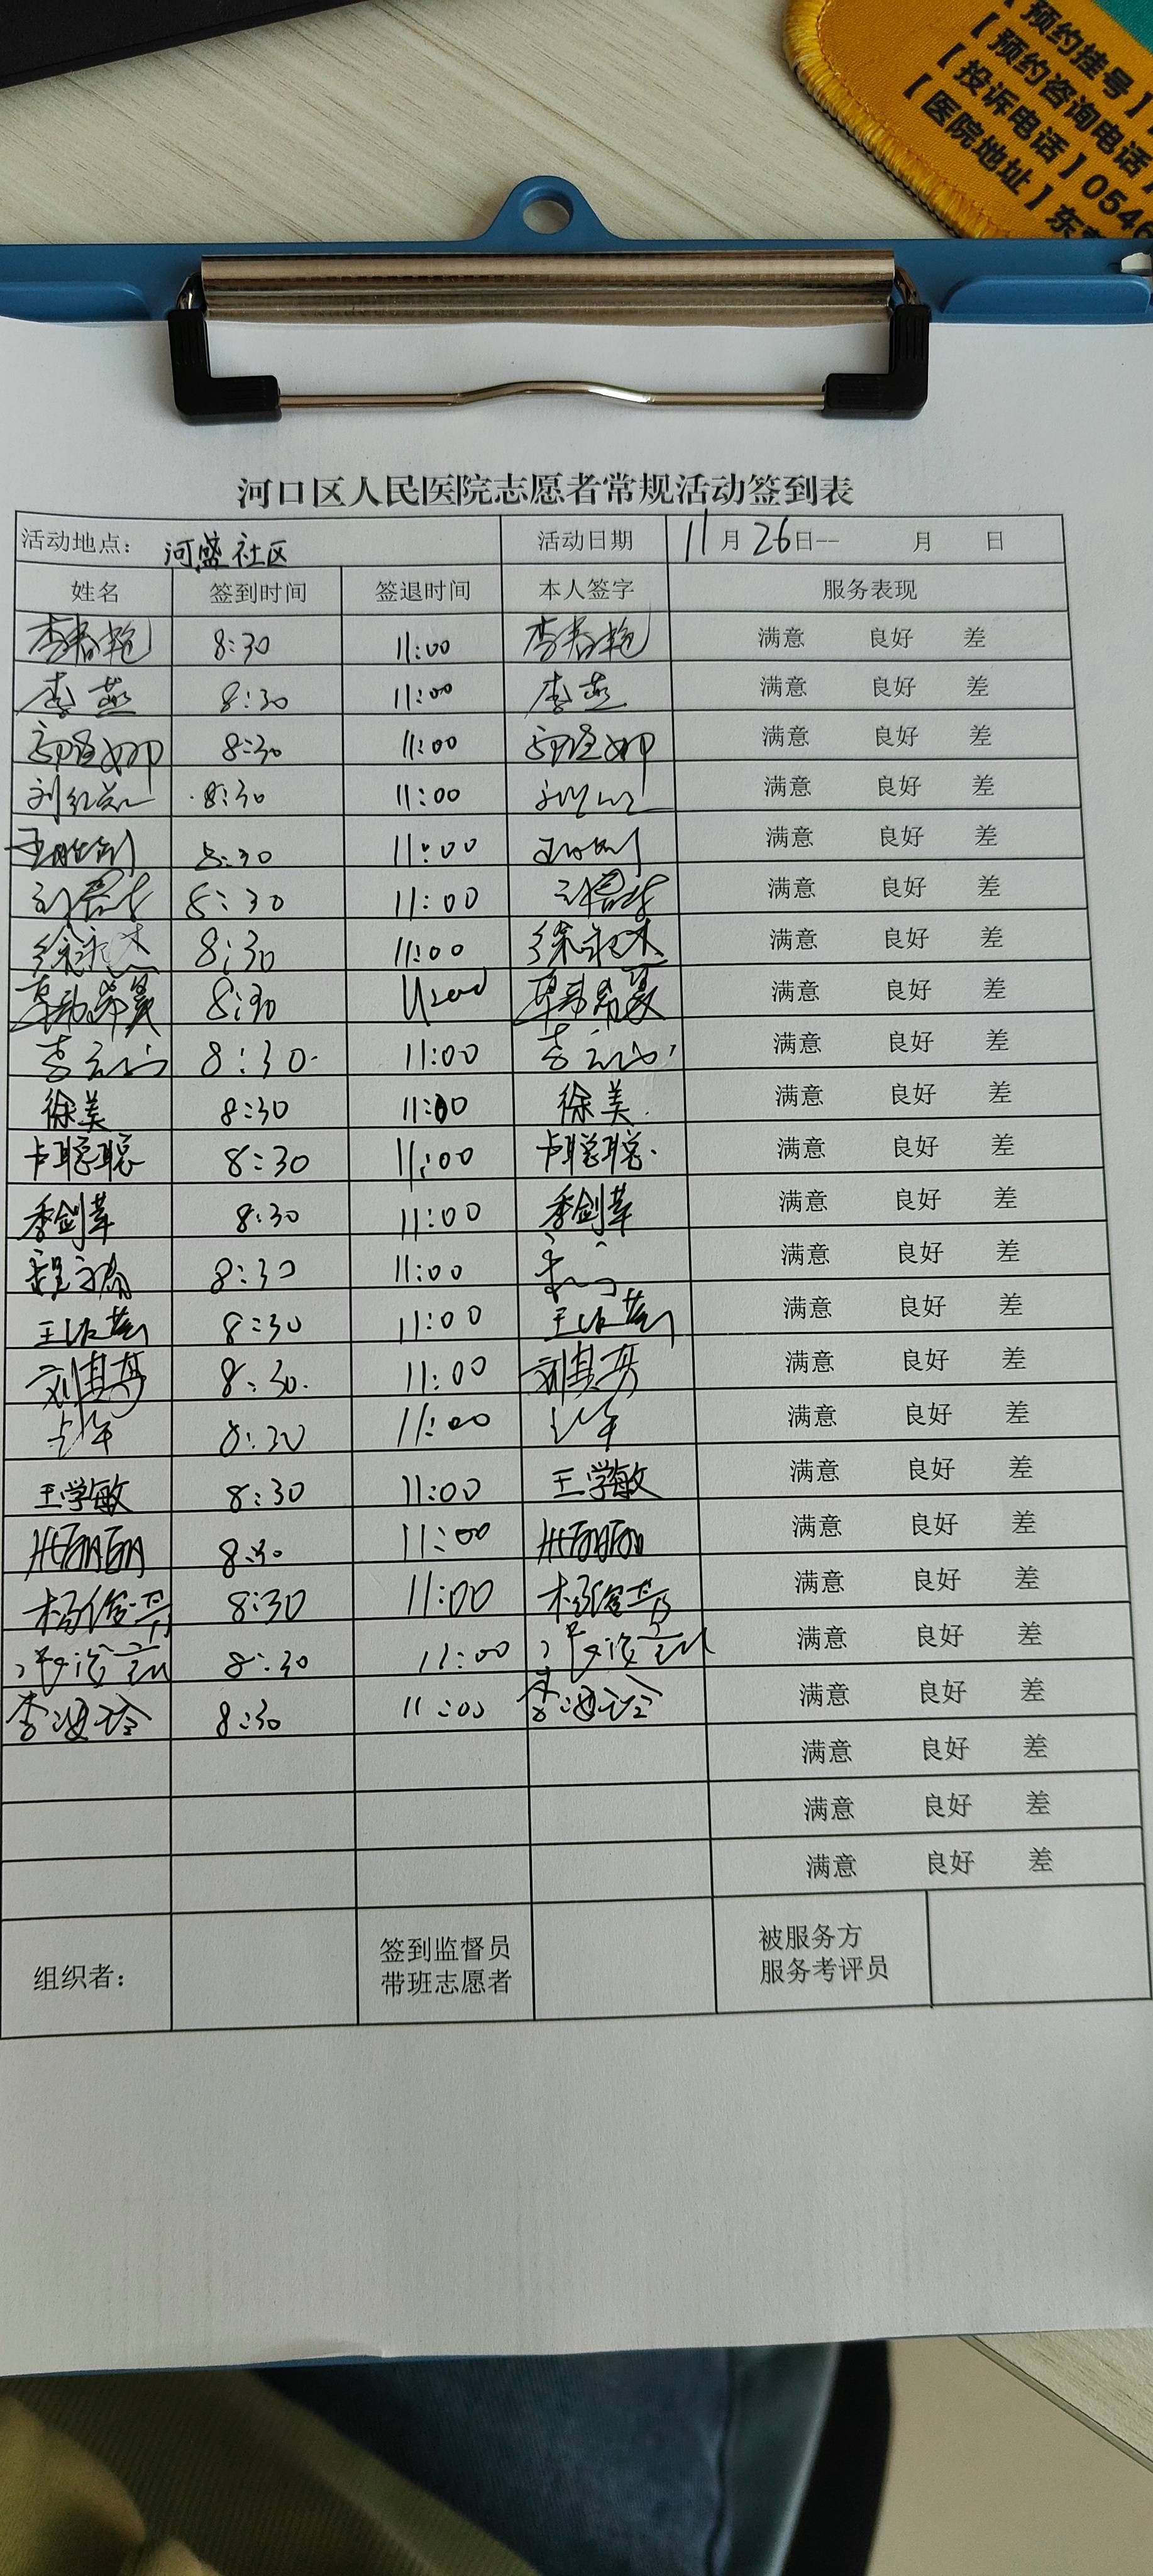 【预约挂号】
【预约咨询电话】
【投诉电话】0546
【医院地址】东
河口区人民医院志愿者常规活动签到表
活动地点： 河盛社区 活动日期 11月26日-- 月 日
姓名 签到时间 签退时间 本人签字 服务表现
李春艳 8:30 11:00 李春艳 满意 良好 差
李燕 8:30 11:00 李燕 满意 良好 差
8:30 11:00 满意 良好 差
8:30 11:00 满意 良好 差
8:30 11:00 满意 良好 差
8:30 11:00 满意 良好 差
8:30 11:00 满意 良好 差
8:30 满意 良好 差
8:30 11:00 满意 良好 差
徐美 8:30 11:00 徐美 满意 良好 差
卢聪聪 8:30 11:00 卢聪聪 满意 良好 差
季剑苹 8:30 11:00 季剑苹 满意 良好 差
8:30 11:00 满意 良好 差
王洁 8:30 11:00 王洁 满意 良好 差
刘其 8:30 11:00 刘其 满意 良好 差
8:30 11:00 满意 良好 差
王学敏 8:30 11:00 王学敏 满意 良好 差
丽丽 8:30 11:00 丽丽 满意 良好 差
杨俊 8:30 11:00 杨俊 满意 良好 差
8:30 11:00 满意 良好 差
李海玲 8:30 11:00 李海玲 满意 良好 差
满意 良好 差
满意 良好 差
满意 良好 差
组织者： 签到监督员 被服务方
带班志愿者 服务考评员